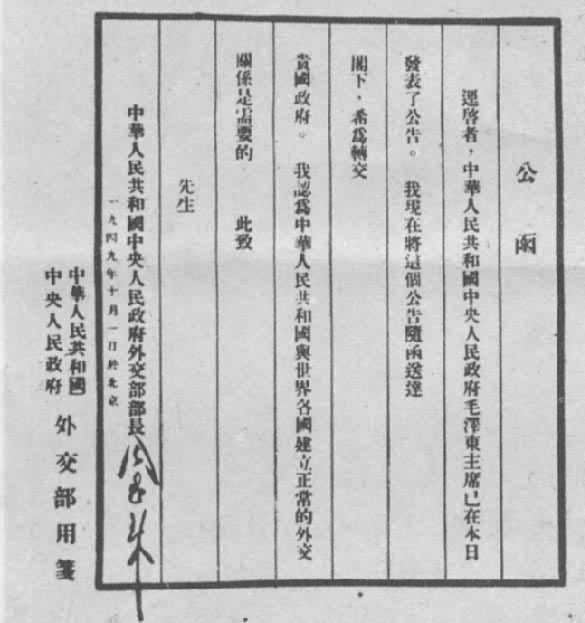 公函
逕啓者，中華人民共和國中央人民政府毛澤東主席已在本日
發表了公告。 我現在將這個公告隨函送達
閣下，希爲轉交
貴國政府。 我認爲中華人民共和國與世界各國建立正常的外交
關係是需要的 此致
先生
中華人民共和國中央人民政府外交部部長 周恩來
一九四九年十月一日於北京
中華人民共和國
中央人民政府
外交部用箋